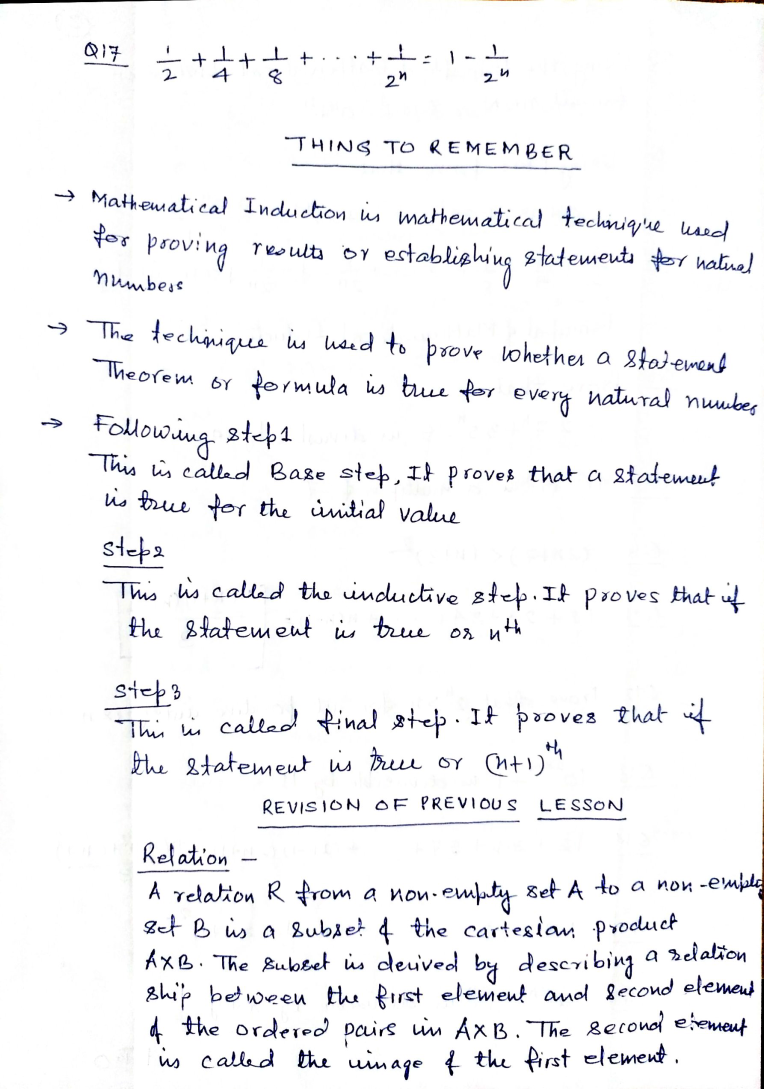 Q17 1/2 + 1/4 + 1/8 + ... + 1/2ⁿ = 1 - 1/2ⁿ
THING TO REMEMBER
→ Mathematical Induction is mathematical technique used
for proving results or establishing statements for natural
numbers
→ The technique is used to prove whether a statement
Theorem or formula is true for every natural number
→ Following step1
This is called Base step, It proves that a statement
is true for the initial value
step2
This is called the inductive step. It proves that if
the statement is true or nth
step3
This is called final step. It prooves that if
the statement is true or (n+1)th
REVISION OF PREVIOUS LESSON
Relation –
A relation R from a non-empty set A to a non-empty
set B is a subset of the cartesian product
A×B. The subset is derived by describing a relation
ship between the first element and second element
of the ordered pairs in A×B. The second element
is called the image of the first element.